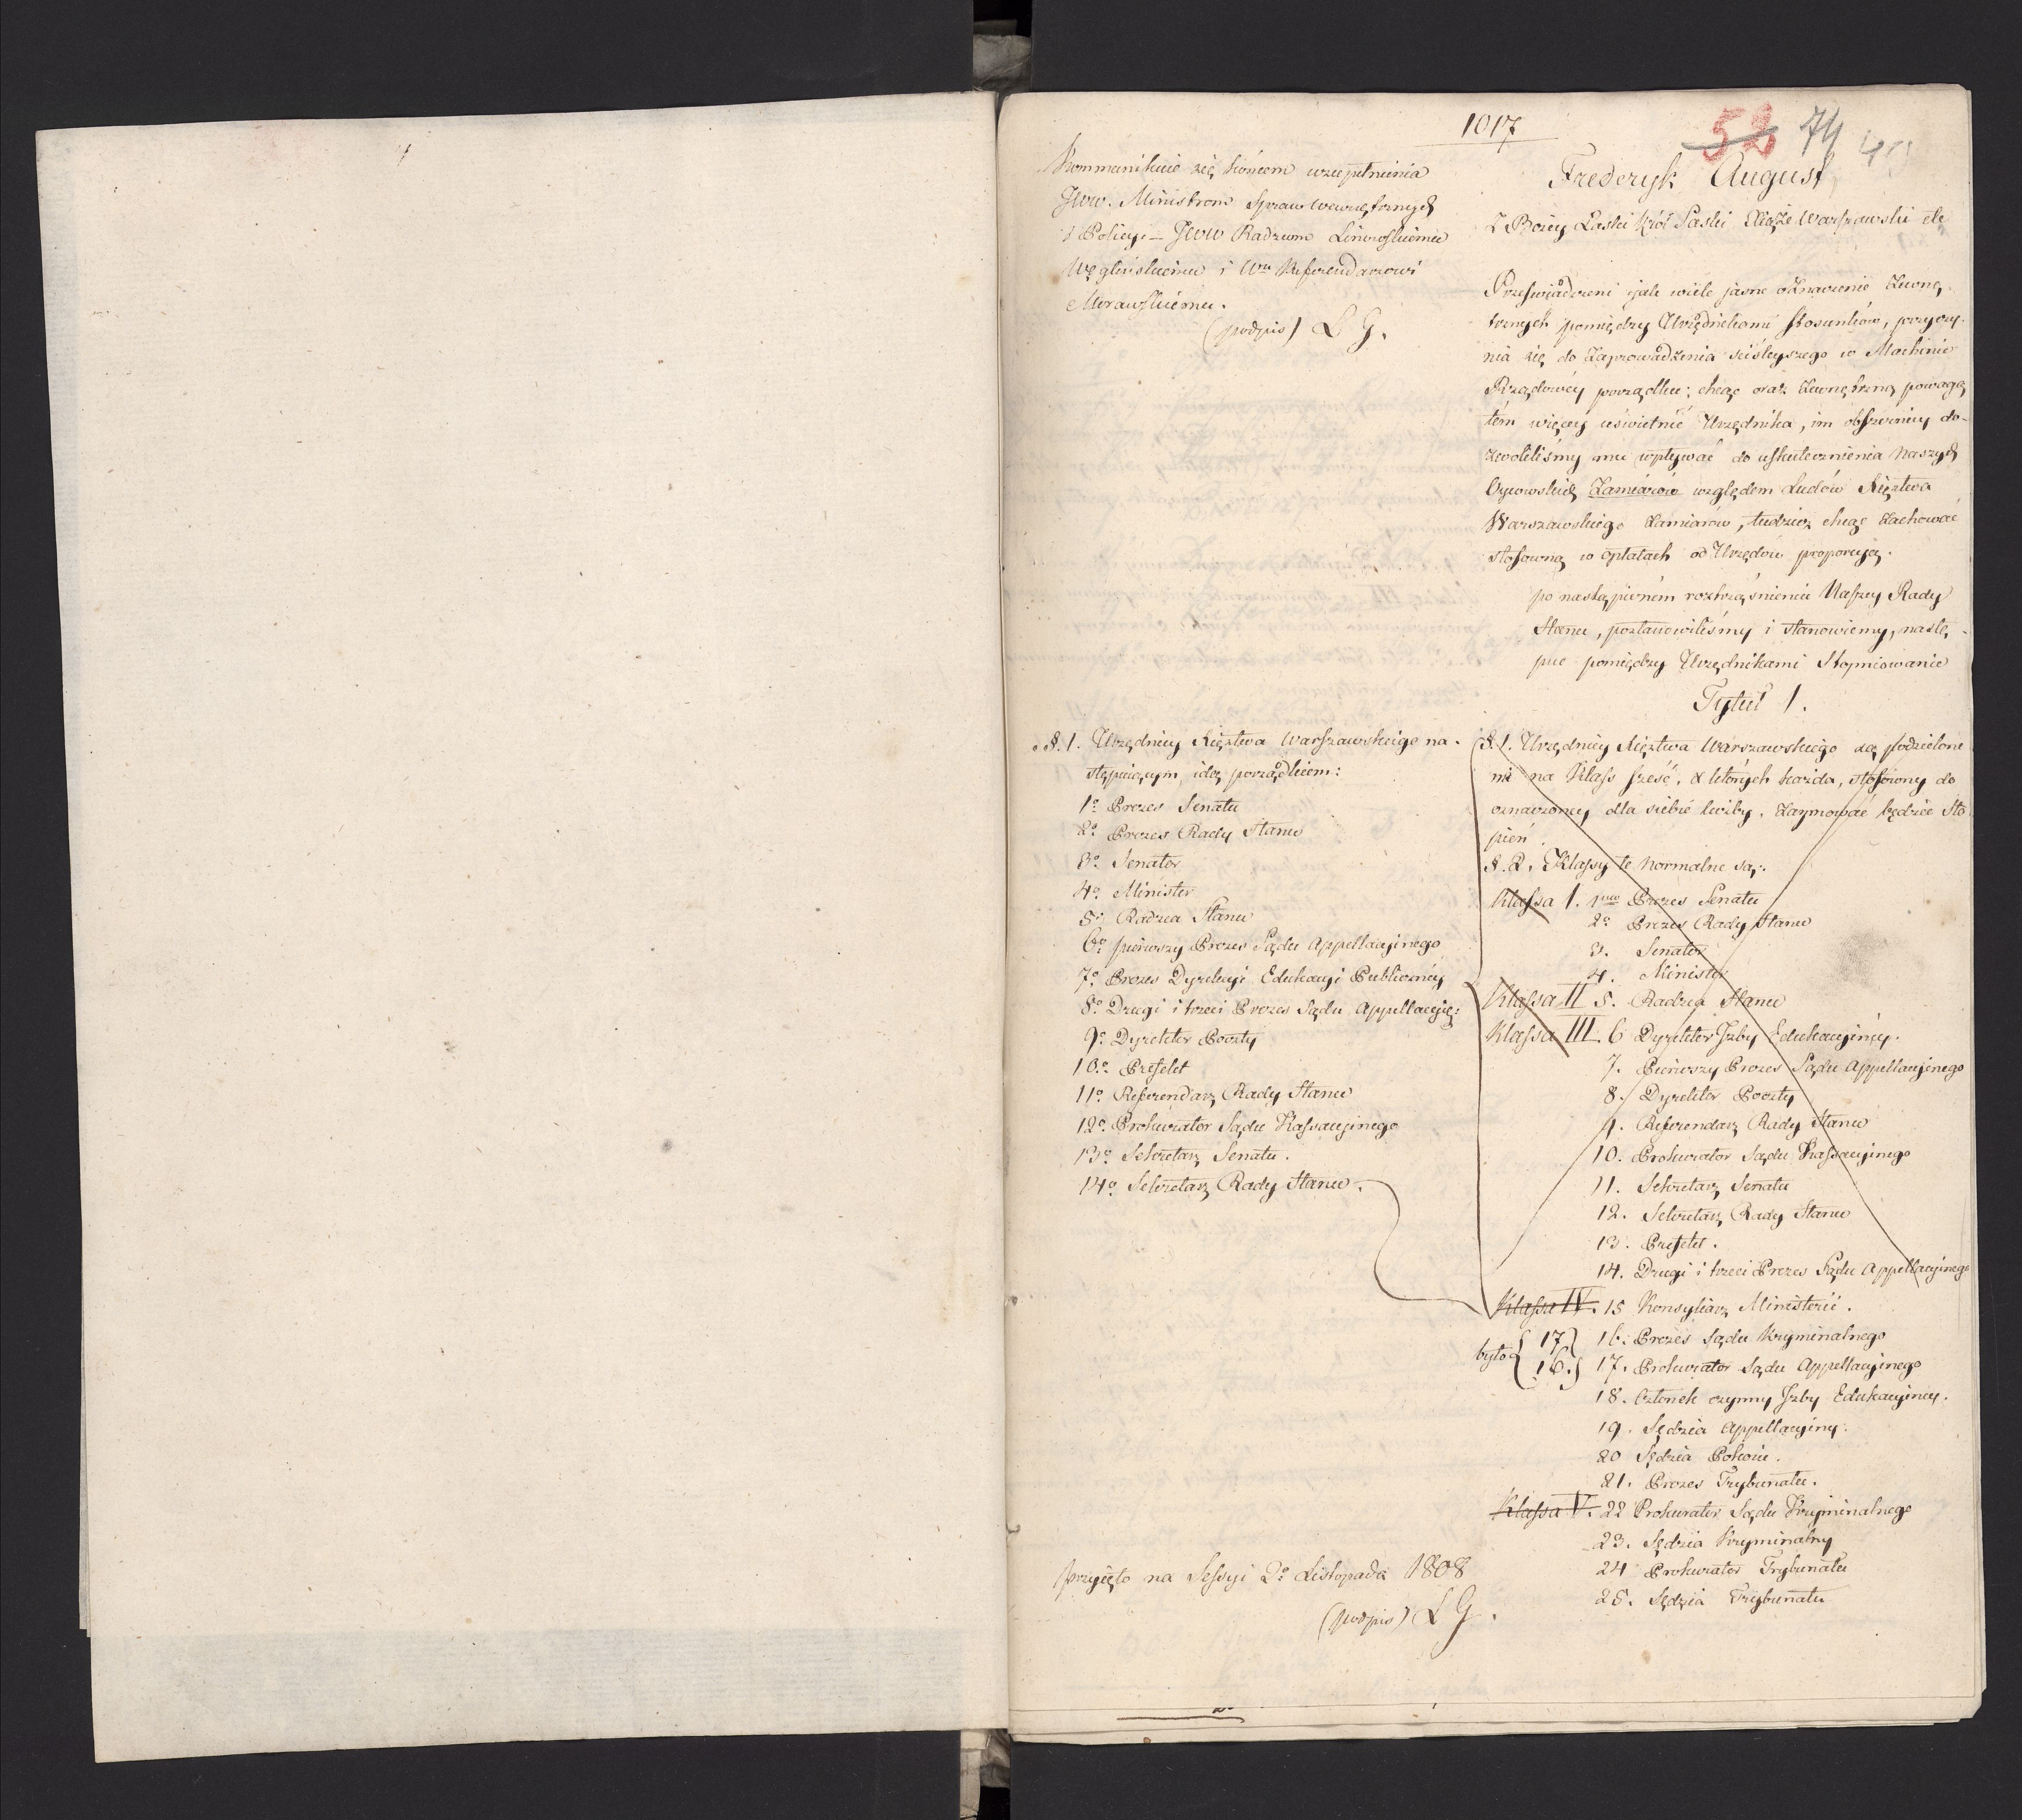 1017
52 74
Kommunikuie się końcem uzupełnienia
JWW. Ministrom Spraw wewnętrznych
i Policyi — JWW Radzcom Linowskiemu
Węglińskiemu i Wmu Referendarzowi
Morawskiemu.
(podpis) L G.
§. 1. Urzędnicy Xięztwa Warszawskiego na-
stępuiącym idą porządkiem:
1o Prezes Senatu
2o Prezes Rady Stanu
3o Senator
4o Minister
5o Radzca Stanu
6o pierwszy Prezes Sądu Appellacyinego
7o Prezes Dyrekcyi Edukacyi Publiczney
8o Drugi i trzeci Prezes Sądu Appellacyi:
9o Dyrektor Poczty
10o Prefekt
11o Referendarz Rady Stanu
12o Prokurator Sądu Kassacyinego
13o Sekretarz Senatu.
14o Sekretarz Rady Stanu.
przyięto na Sessyi 2o Listopada 1808
(podpis) L G.
Frederyk August
Z Bożey Łaski Król Saski Xiąże Warszawski etc
Przeświadczeni iak wiele jasne oznaczenie zewnę-
trznych pomiędzy Urzędnikami stosunków, przyczy-
nia się do zaprowadzenia ściśleyszego w Machinie
Rządowey porządku; chcąc oraz zewnętrzną powagą
tém więcey uświetnić Urzędnika, im obszerniey do-
zwoliliśmy mu wpływać do uskutecznienia Naszych
Oycowskich Zamiarów względem Ludów Xięztwa
Warszawskiego zamiarów, tudzież chcąc zachować
stosowną w opłatach od Urzędów proporcyą.
po nastąpioném roztrząśnieniu Naszey Rady
Stanu, postanowiliśmy i stanowiemy, nastę-
puie pomiędzy Urzędnikami Stopniowanie
Tytuł 1.
§. 1. Urzędnicy Xięztwa Warszawskiego są podzielone
mi na Klass sześć, z których każda, stosowny do
oznaczoney dla siebie liczby, zaymować będzie Sto
pień.
§. 2. Klassy te normalne są:
Klassa I. 1mo Prezes Senatu
2o Prezes Rady Stanu
3. Senator
4. Minister
Klassa II 5. Radzca Stanu
Klassa III. 6 Dyrektor Jzby Edukacyiney.
7. Pierwszy Prezes Sądu Appellacyinego
8. Dyrektor Poczty
9. Referendarz Rady Stanu
10. Prokurator Sądu Kassacyinego
11. Sekretarz Senatu
12. Sekretarz Rady Stanu
13. Prefekt.
14. Drugi i trzeci Prezes Sądu Appellacyinego
Klassa IV. 15 Konsyliarz Ministerii.
było { 17 } 16. Prezes Sądu Kryminalnego
{ 16. } 17. Prokurator Sądu Appellacyinego
18. Członek czynny Jzby Edukacyiney.
19. Sędzia Appellacyiny.
20 Sędzia Pokoiu.
21. Prezes Trybunału.
Klassa V. 22 Prokurator Sądu Kryminalnego
23. Sędzia Kryminalny
24 Prokurator Trybunału
25. Sędzia Trybunału